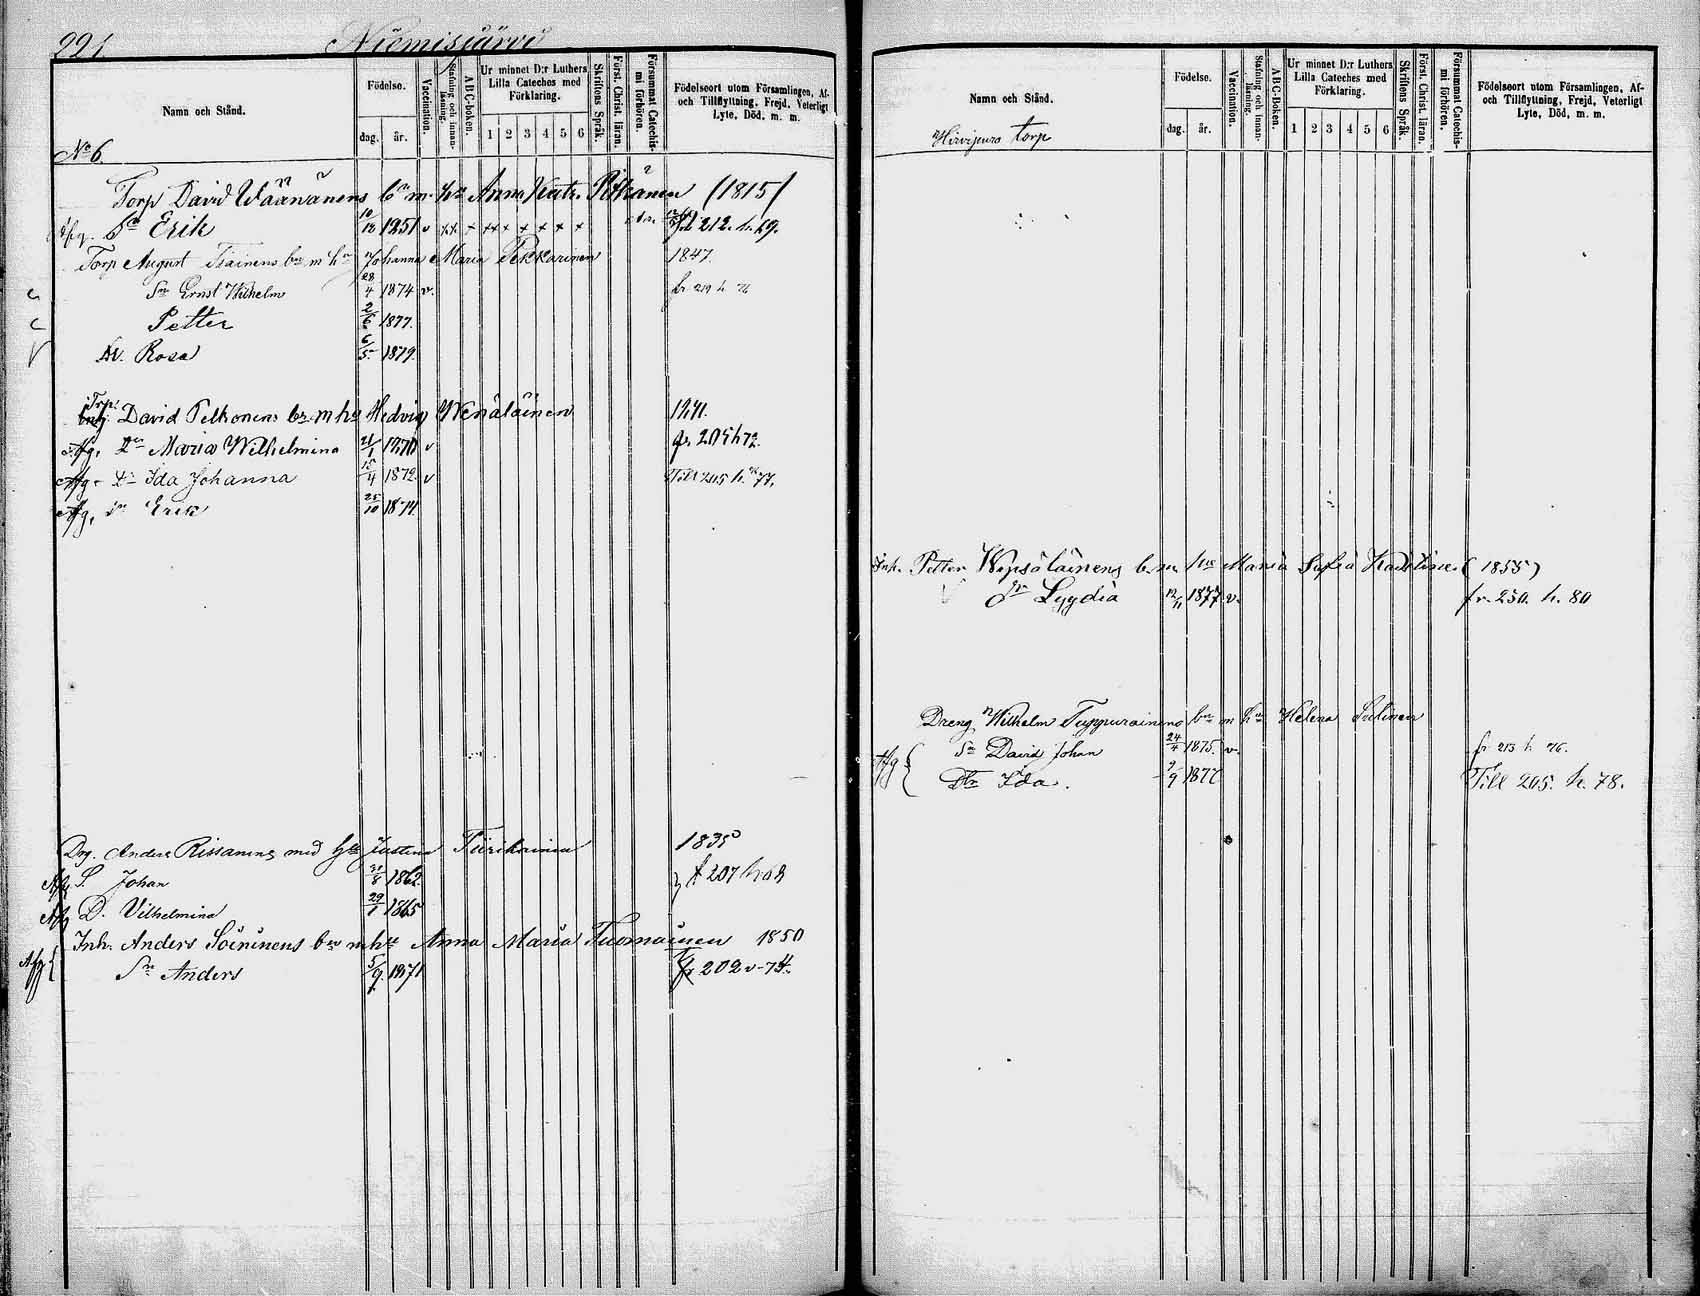 221. Niemisjärvi
Namn och Stånd.
Födelse.
dag. år.
Vaccination.
Stafning och innanläsning.
ABC-boken.
Ur minnet D:r Luthers Lilla Cateches med Förklaring.
1 2 3 4 5 6
Skriftens Språk.
Först. Christ. läran.
Försummat Catechismi förhören.
Födelseort utom Församlingen, Af- och Tillflyttning, Frejd, Veterligt Lyte, Död, m. m.
No 6
Torp David Wäänänens bn m. hu Anna Kat. Pitkänen (1815)
Erik 1851 v fr 212. h. 69.
Torp August Tiainens bn m hu Johanna Maria Pekkarinen 1847.
Sn Ernst Wilhelm 28/4 1874 v. fr 219 h 76
Petter 2/6 1877.
Rosa 6/5 1879.
Trp. David Pelkonens bn m hu Hedvig Wenäläinen 1841.
Afg. Dr Maria Wilhelmina 21/1 1870 v fr. 205 h 72.
Afg. Dr Ida Johanna 15/4 1872. v Till 205 h. 77.
Afg. Sn Erik 25/10 1874
Drg. Anders Rissanens med hu Justina 1835
Afg S. Johan 31/8 1862 f 207
Afg D. Vilhelmina 29/1 1865
Inh. Anders Soininens bn m hu Anna Maria Tuomainen 1850
Afg Sn Anders 5/9 1871 fr 202 v 74.
Namn och Stånd.
Hirvipuro torp
Födelse.
dag. år.
Vaccination.
Stafning och innanläsning.
ABC-Boken.
Ur minnet D:r Luthers Lilla Cateches med Förklaring.
1 2 3 4 5 6
Skriftens Språk.
Först. Christ. läran.
Försummat Catechismi förhören.
Födelseort utom Församlingen, Af- och Tillflyttning, Frejd, Veterligt Lyte, Död, m. m.
Inh. Petter Wepsäläinens b. m. hu Maria Sofia (1855)
Dr Lyydia 12/11 1877. v. fr. 250. h. 80
Dreng Wilhelm Tuppurainens bn m hu Helena
Afg { Sn David Johan 24/4 1875. v. fr 213 h 76.
Dtr Ida. 7/9 1877 Till 205. h. 78.